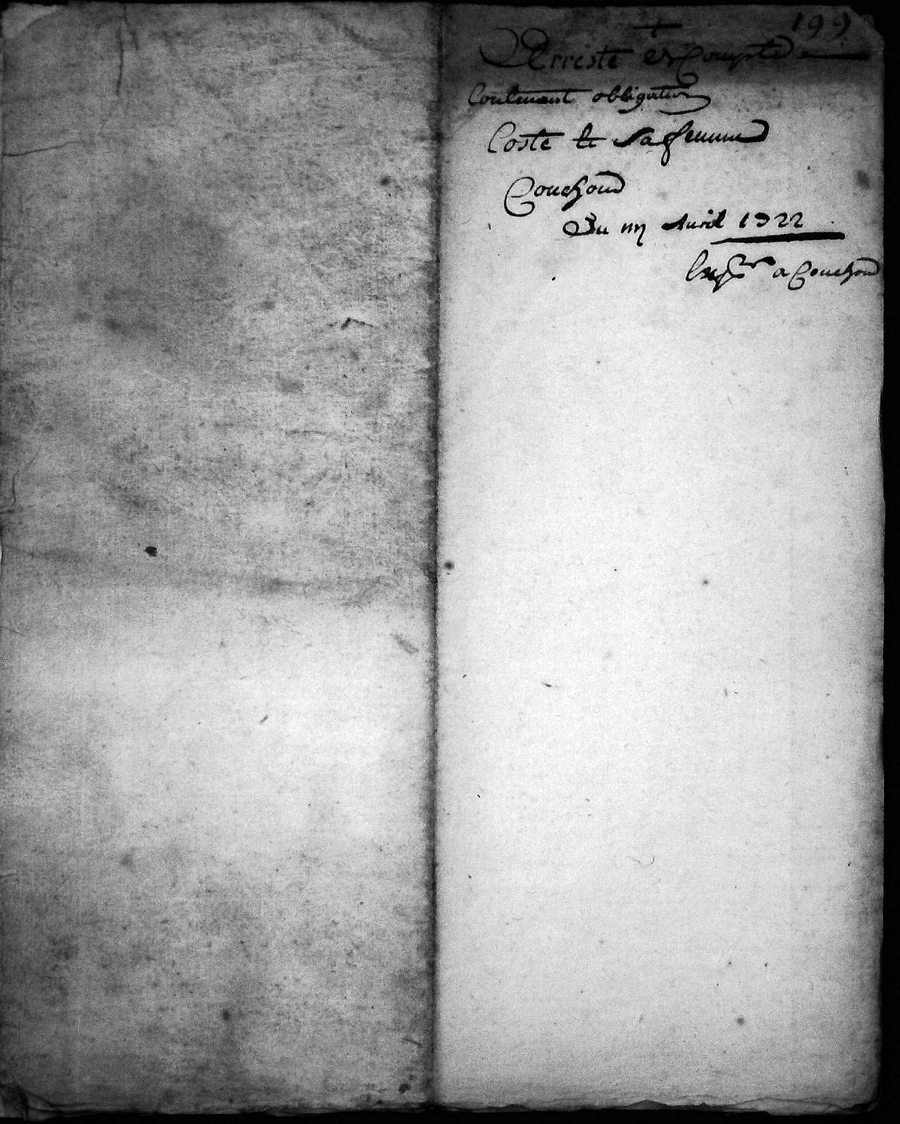 199
Arreste de Compte
Contenant obligation
Coste et Sa femme
Couchoud
Du Avril 1722
a Couchoud